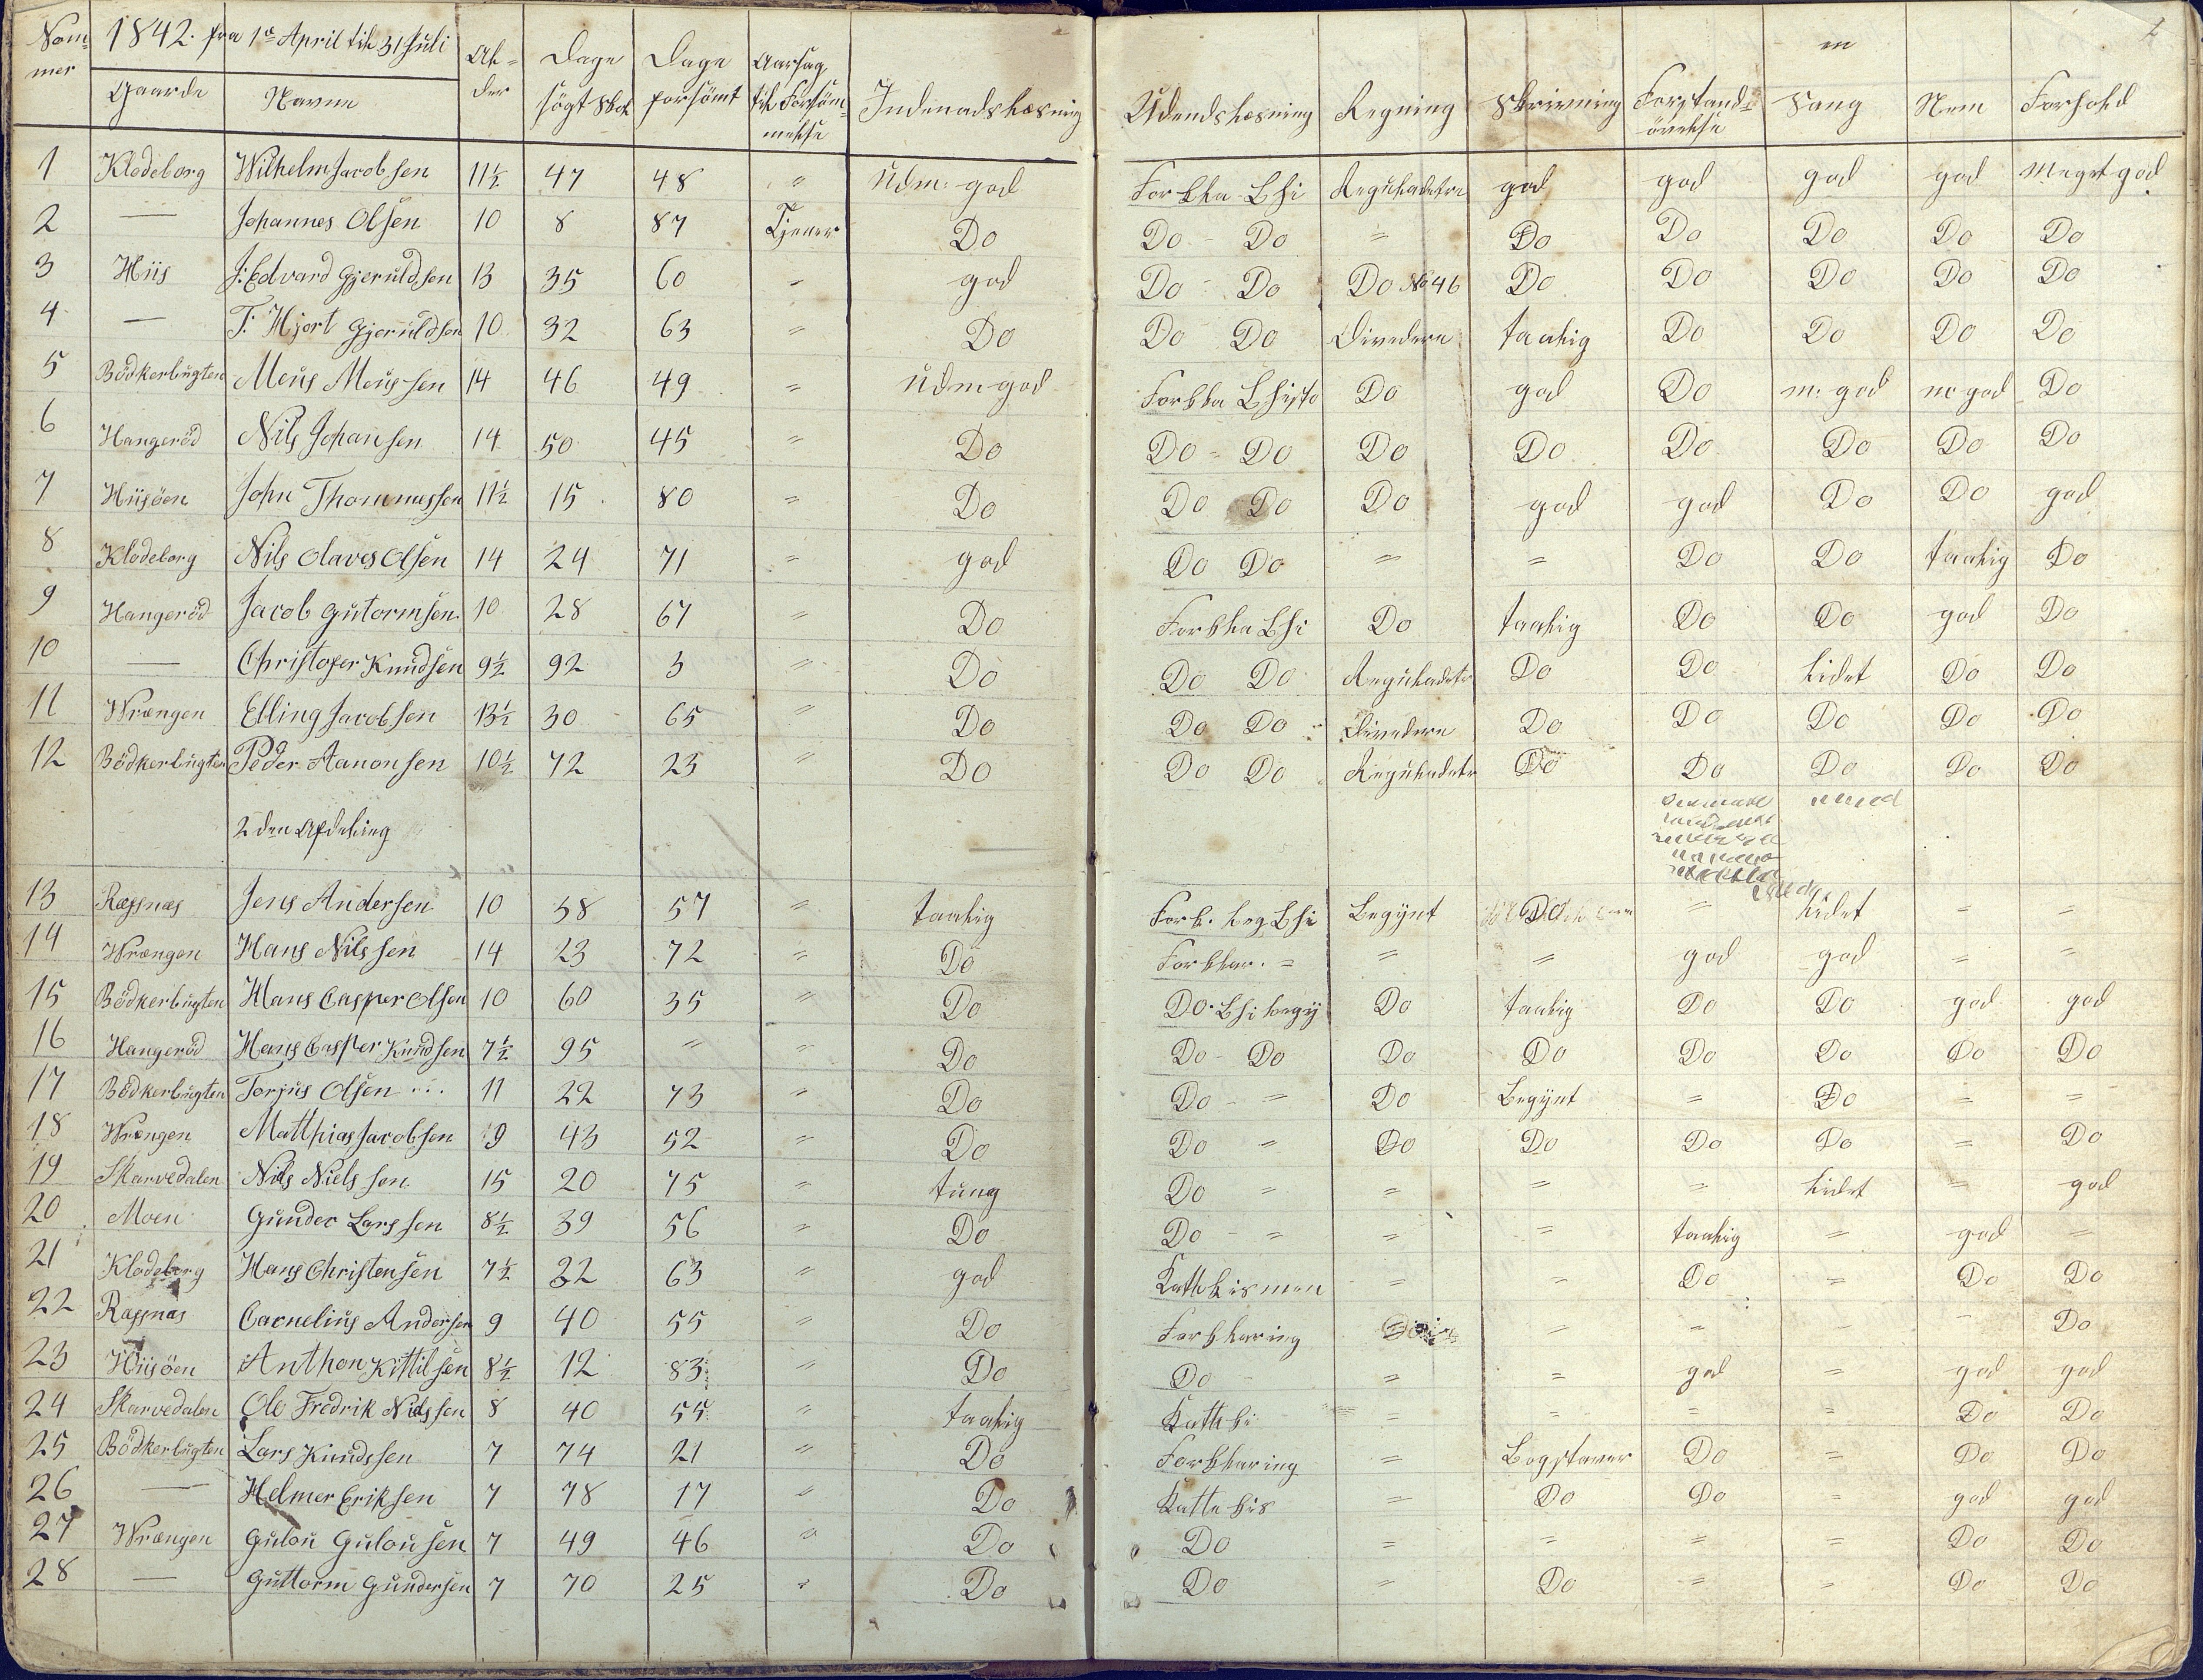 Nom- 1842. fra 1ste April til 31 Juli Al- Dage Dage Aarsag en 2
mer Gaarde Navne der sögt Skol forsömt til Forsöm- Indenadslæsning Udendslæsning Regning Skrivning Forstands- Sang Nem Forhold
melse övelse
1 Klodeborg Wilhelm Jacobsen 11½ 47 48 " Udm: god Forkla- Bhi Reguladetri god god god god Meget god
2 — Johannes Olsen 10 8 87 Tjener Do Do - Do = Do Do Do Do Do
3 Hiis J: Edvard Gjeruldsen 13 35 60 " god Do - Do Do No 46 Do Do Do Do Do
4 — T: Hjort Gjeruldsen 10 32 63 " Do Do Do Dividere taalig Do Do Do Do
5 Bödkerbugten Meus Meussen 14 46 49 " Udm god Forkla Bhisto Do god Do m: god m god Do
6 Hangeröd Nils Johansen 14 50 45 " Do Do = Do Do Do Do Do Do Do
7 Hiisöen John Thommessen 11½ 15 80 " Do Do Do Do god god Do Do god
8 Klodeborg Nils Olaves Olsen 14 24 71 " god Do Do = = Do Do taalig Do
9 Hangeröd Jacob Gutormsen 10 28 67 " Do Forkla Bhi Do taalig Do Do god Do
10 — Christofer Knudsen 9½ 92 3 " Do Do Do Reguladetr Do Do lidet Do Do
11 Wrængen Elling Jacobsen 13½ 30 65 " Do Do Do Dividere Do Do Do Do Do
12 Bödkerbugten Peder Aanonsen 10½ 72 23 " Do Do Do Reguladetr Do Do Do Do Do
2den Afdeling
13 Ræsnæs Jens Andersen 10 38 57 " taalig Fork. beg. Bhi Begynt Do = lidet = =
14 Wrængen Hans Nilssen 14 23 72 " Do Forklar. = = = god god = =
15 Bödkerbugten Hans Casper Olsen 10 60 35 " Do Do. Bhi begy Do taalig Do Do god god
16 Hangeröd Hans Casper Knudsen 7½ 95 " " Do Do - Do Do Do Do Do Do Do
17 Bödkerbugten Torjus Olsen 11 22 73 " Do Do - = Do Begynt = Do = =
18 Wrængen Matthias Jacobsen 9 43 52 " Do Do = Do Do Do Do = Do
19 Skarvedalen Nils Nielssen 15 20 75 " tung Do = = = = lidet = god
20 Moen Gunder Larssen 8½ 39 56 " Do Do - = = = taalig = god =
21 Klodeborg Hans Christensen 7½ 32 63 " god Kathkismen = = Do = Do Do
22 Ræsnæs Cornelius Andersen 9 40 55 " Do Forklaring = = Do
23 Hiisöen Anthon Kittilsen 8½ 12 83 " Do Do - = = god = god god
24 Skarvedalen Ole Fredrik Nielssen 8 40 55 " taalig Kathki = = = = Do Do
25 Bödkerbugten Lars Knudssen 7 74 21 " Do Forklaring = Bogstaver Do = Do Do
26 — Helmer Eriksen 7 78 17 " Do Kattekis = Do Do = god god
27 Wrængen Gulou Gulousen 7 49 46 " Do Do = = = = Do Do
28 — Guttorm Gundersen 7 70 25 " Do Do = Do = = Do Do